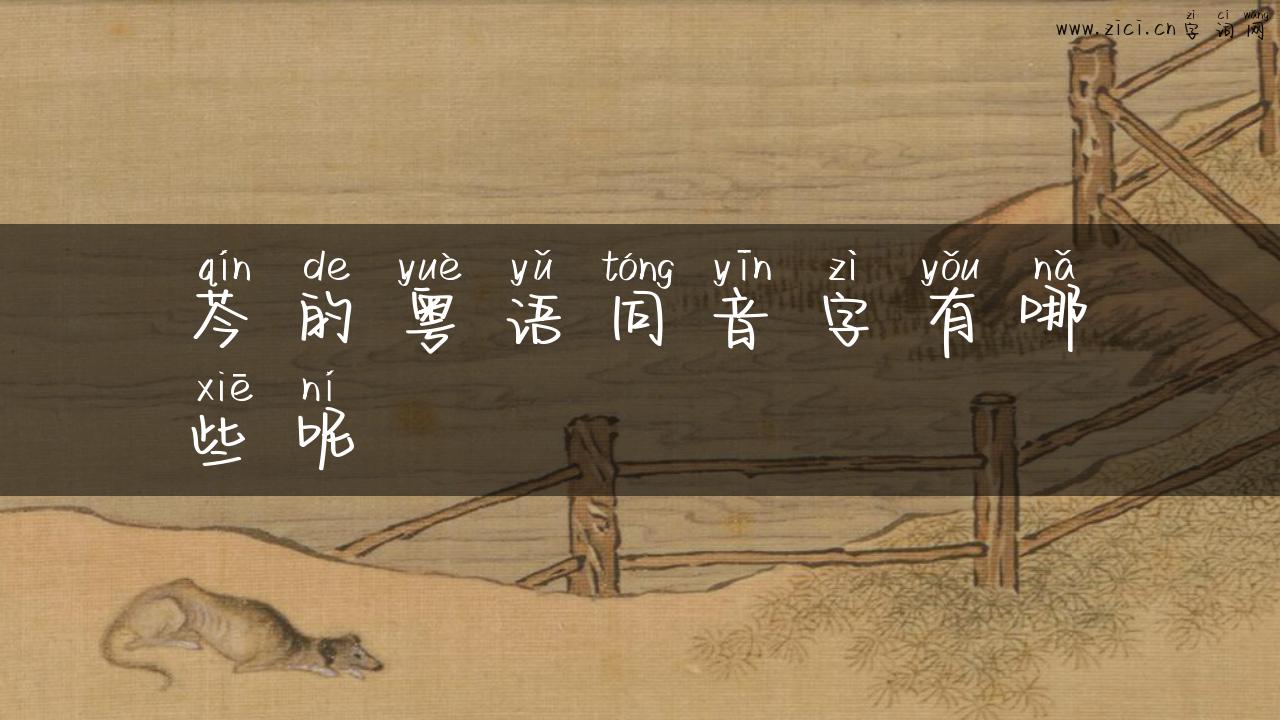 zì cí wǎng
www.zici.cn字词网
qín de yuè yǔ tóng yīn zì yǒu nǎ
芩的粤语同音字有哪
xiē ní
些呢